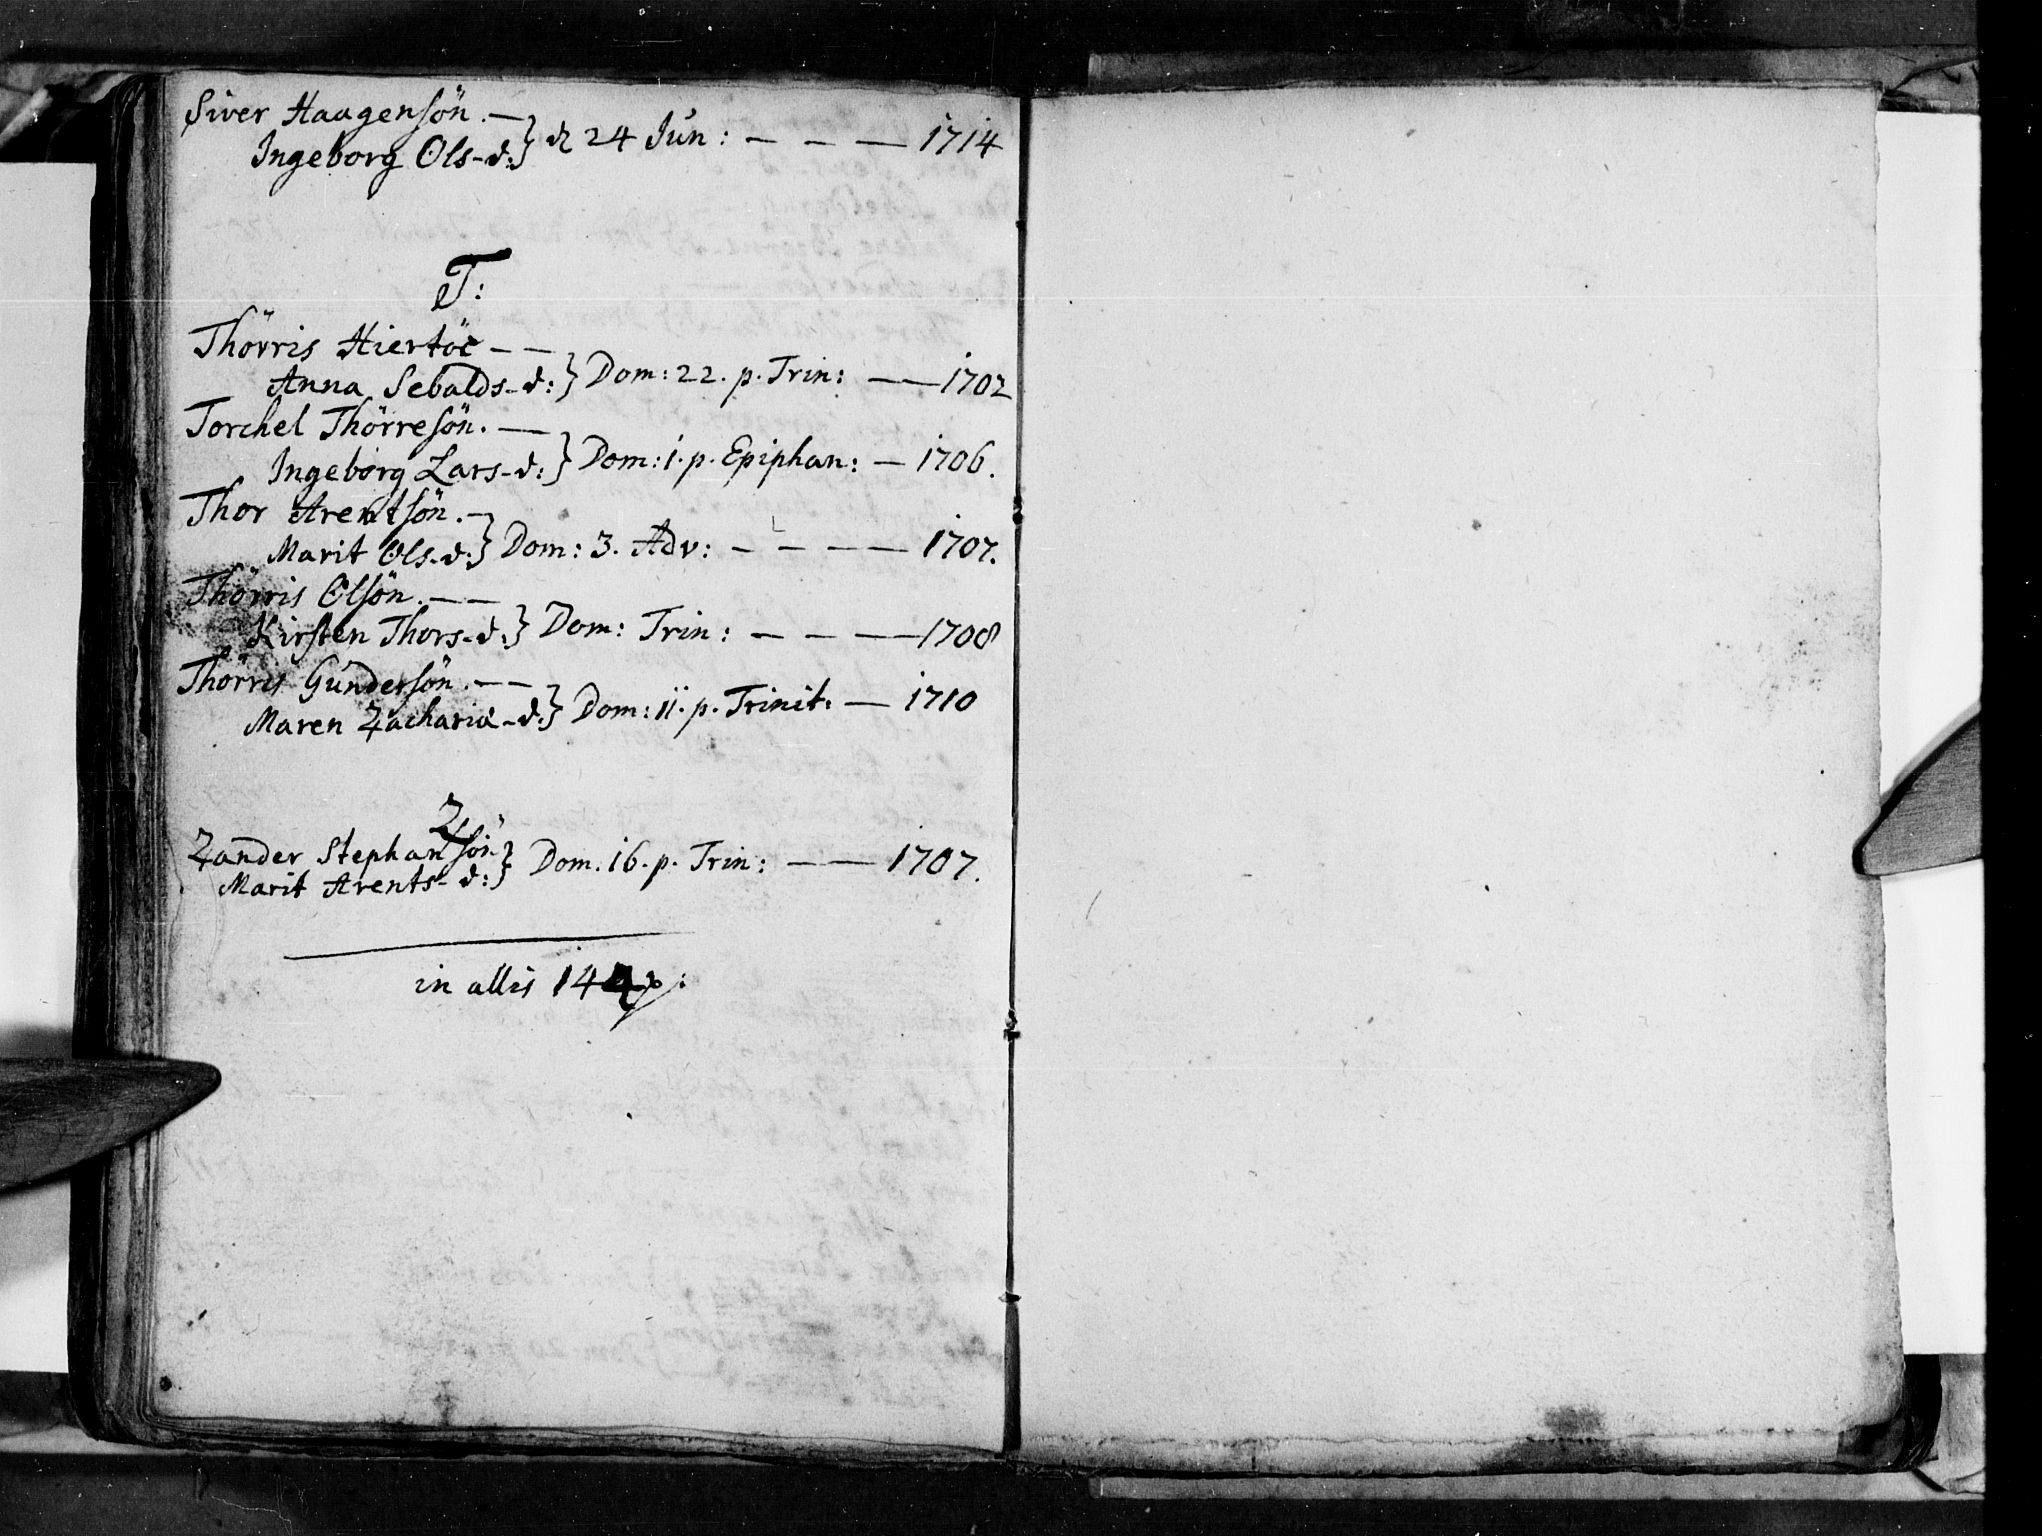 Siver Haagensön. —
Ingeborg Ols-d:} d 24 Jún: — — — 1714
T:
Thörris Hiertöe — —
Anna Sebalds-d:} Dom: 22. p. Trin: — — 1702
Torchel Thörresön. —
Ingeborg Lars-d:} Dom: 1. p. Epiphan: — 1706.
Thor Arentsön. —
Marit Ols-d:} Dom: 3. Adv: — — — — 1707.
Thörris Olsön. — —
Kirsten Thors-d:} Dom: Trin: — — — 1708
Thörris Gúndersön. — —
Maren Zachariæ-d:} Dom: 11. p. Trinit: — 1710
Z
Zander Stephansön
Marit Arents-d:} Dom. 16. p. Trin: — — 1707.
in allis 144